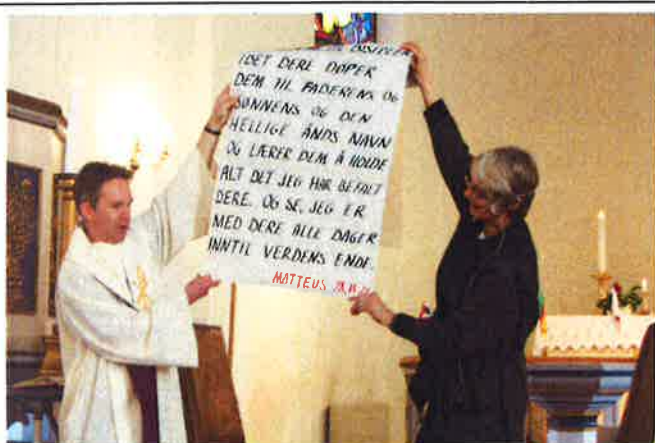 DISIPLER
IDET DERE DØPER
DEM TIL FADERENS OG
SØNNENS OG DEN
HELLIGE ÅNDS NAVN
OG LÆRER DEM Å HOLDE
ALT DET JEG HAR BEFALT
DERE. OG SE, JEG ER
MED DERE ALLE DAGER
INNTIL VERDENS ENDE.
MATTEUS